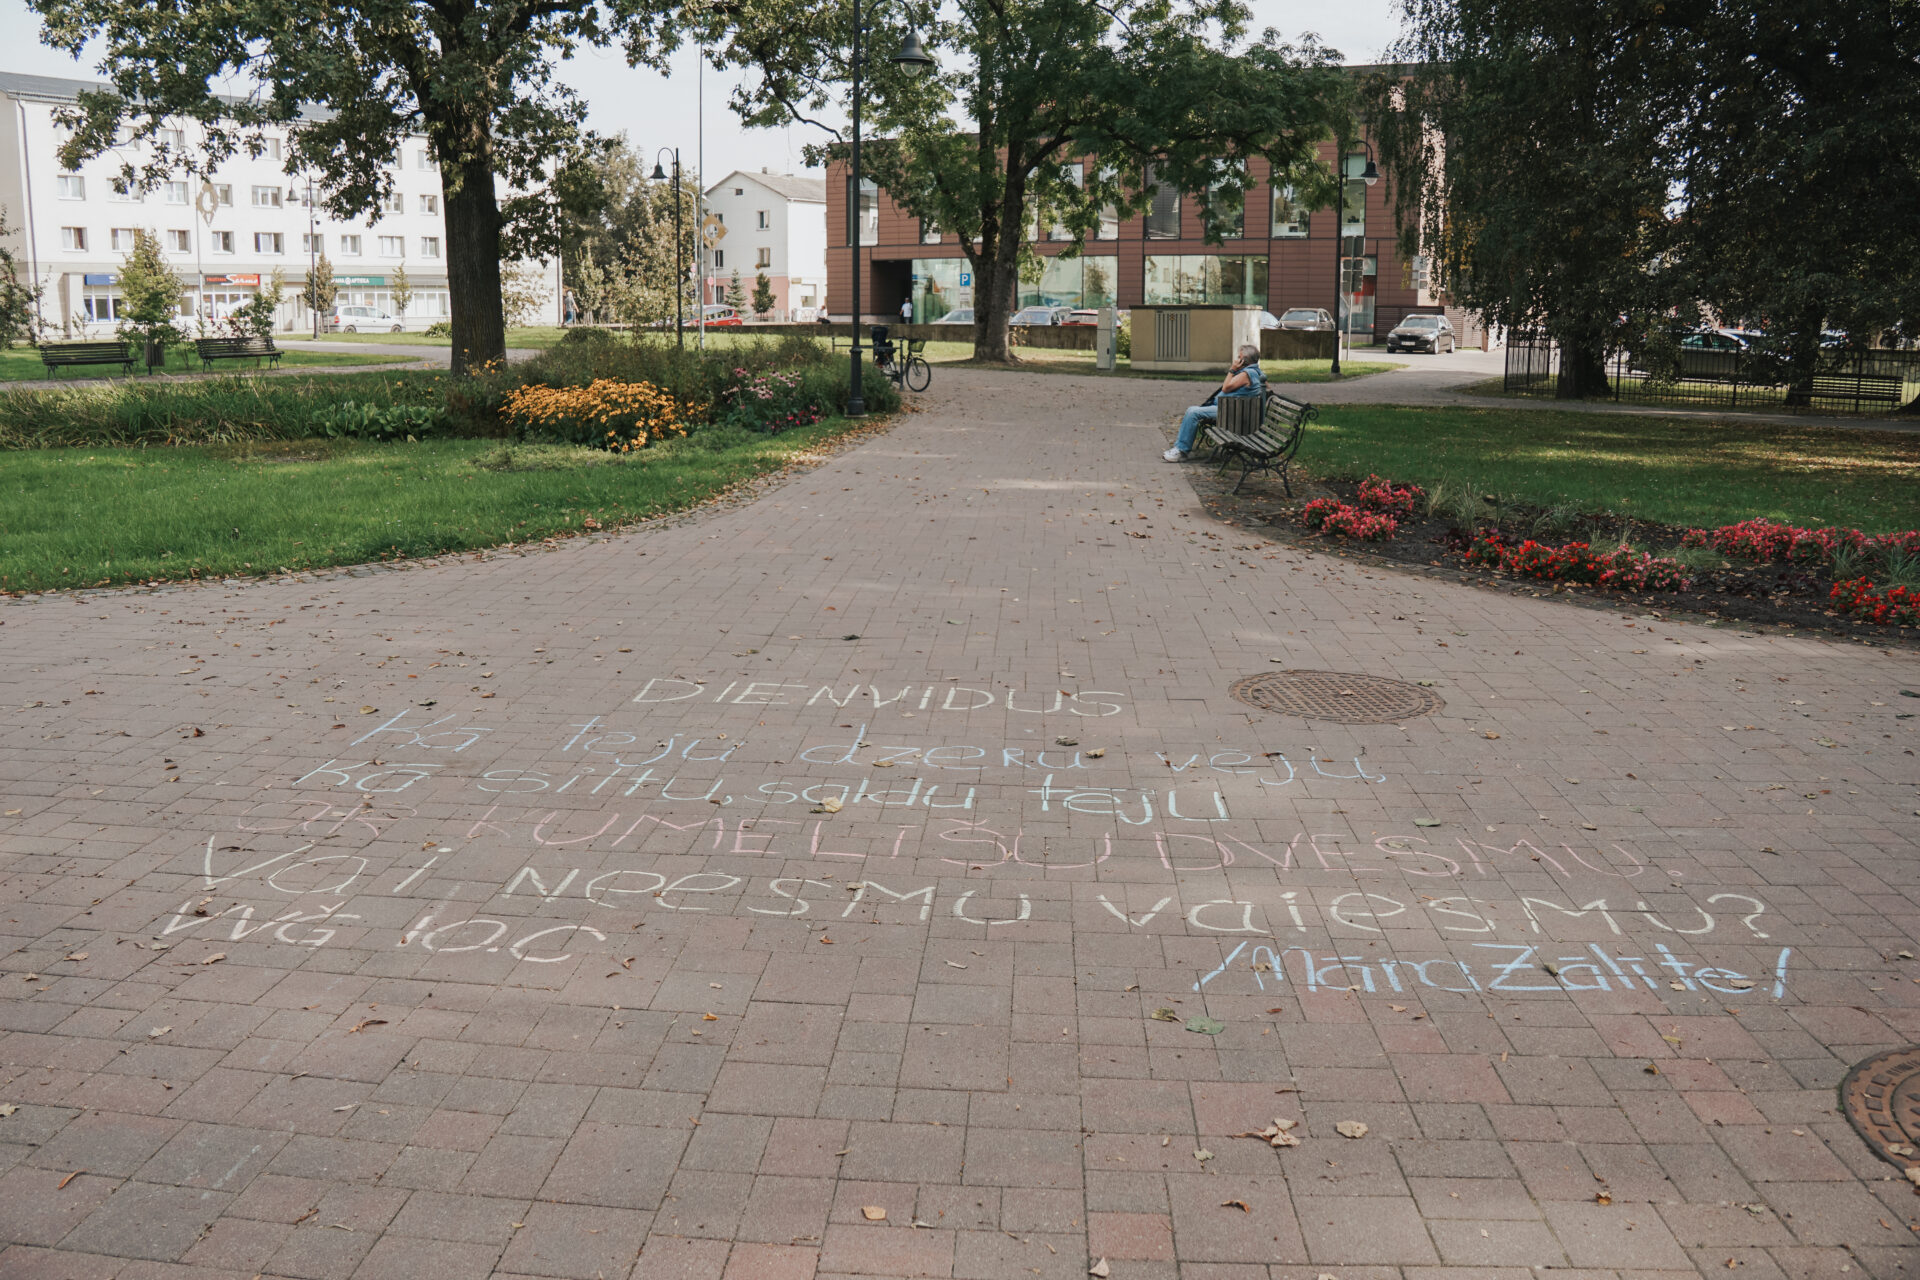 DIENVIDUS
Kā teju dzeru vēju,
Kā siltu, saldu teju
AR KUMELĪŠU DVESMU.
Vai neesmu vairs esmu?
VVĢ 10.c
/Māra Zālīte/